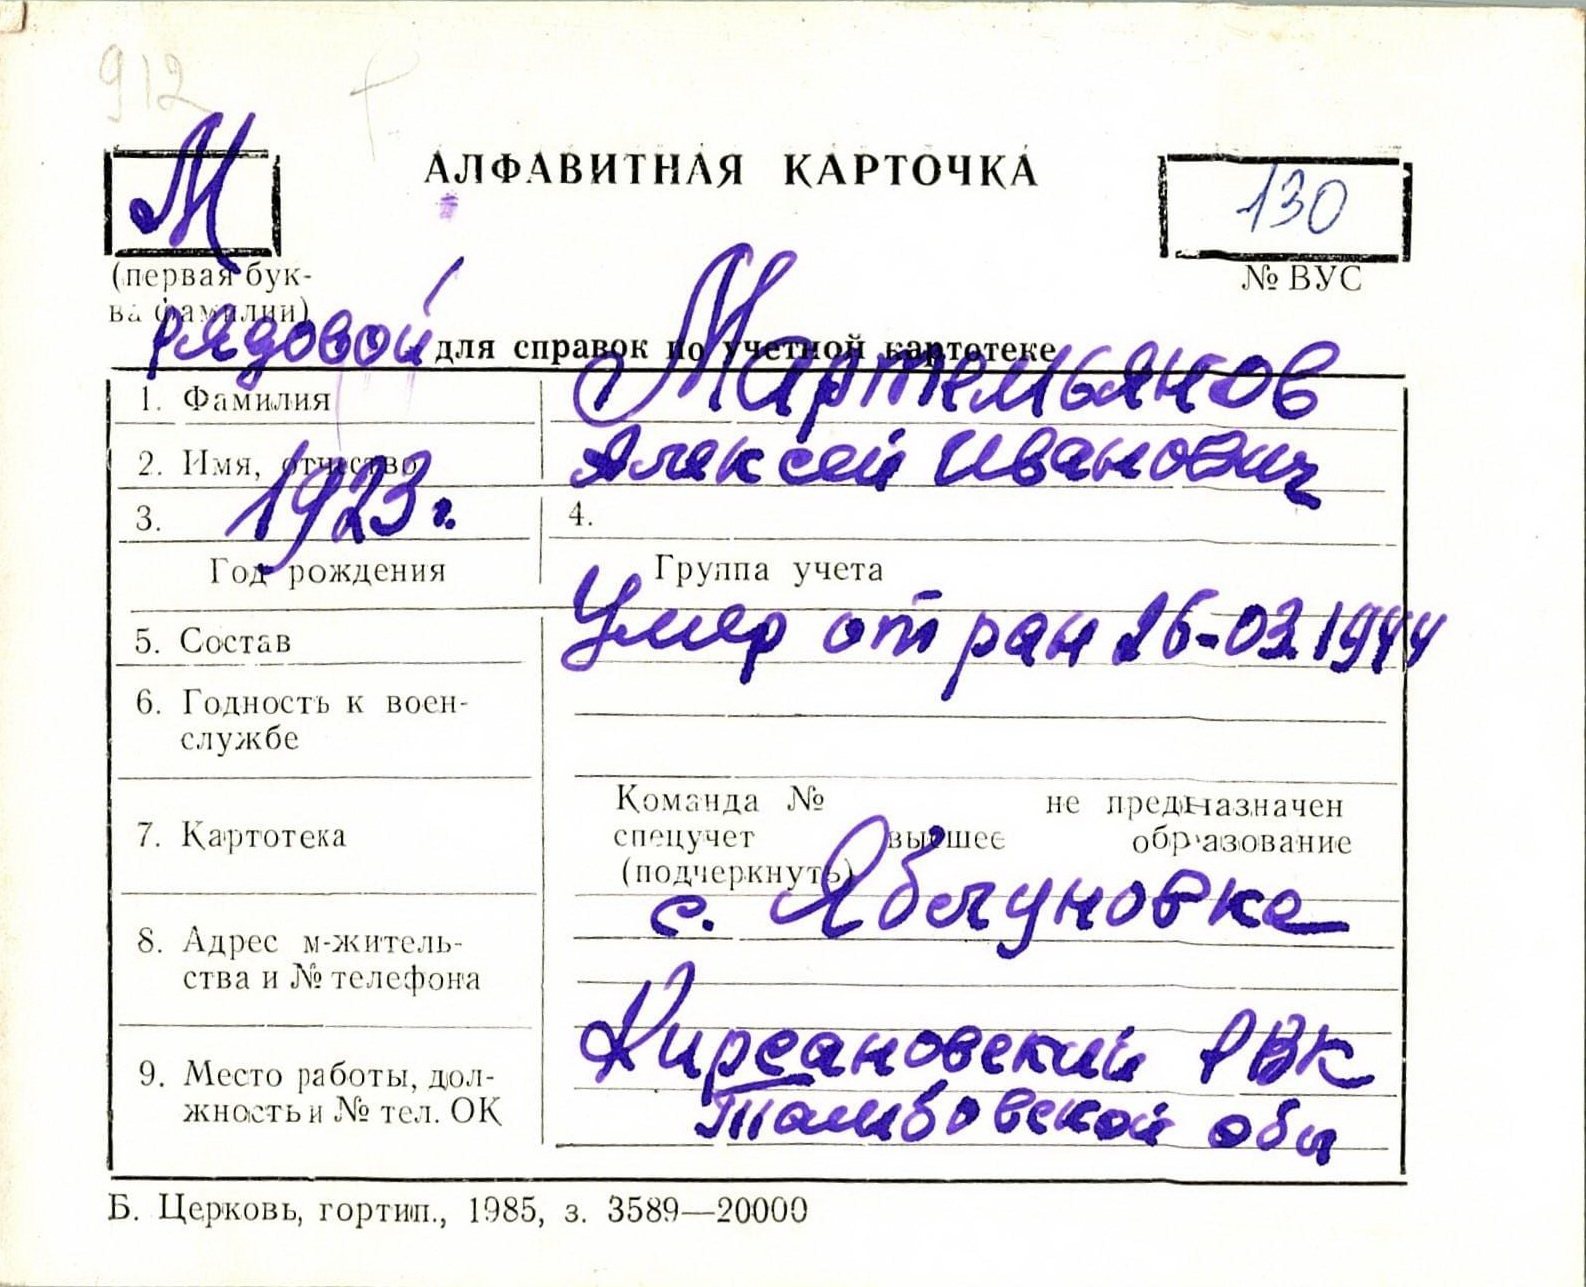 912
М
АЛФАВИТНАЯ КАРТОЧКА
130
(первая бук-
ва фамилии)
№ ВУС
рядовой
для справок по учетной картотеке
1. Фамилия
Мартемьянов
2. Имя, отчество
Алексей Иванович
3. 1923 г.
4.
Год рождения
Группа учета
5. Состав
Умер от ран 26-03.1944
6. Годность к воен-
службе
7. Картотека
Команда № не предназначен
спецучет высшее образование
(подчеркнуть)
с. Яблуновка
8. Адрес м-житель-
ства и № телефона
Кирсановский РВК
9. Место работы, дол-
жность и № тел. ОК
Тамбовской обл
Б. Церковь, гортип., 1985, з. 3589—20000